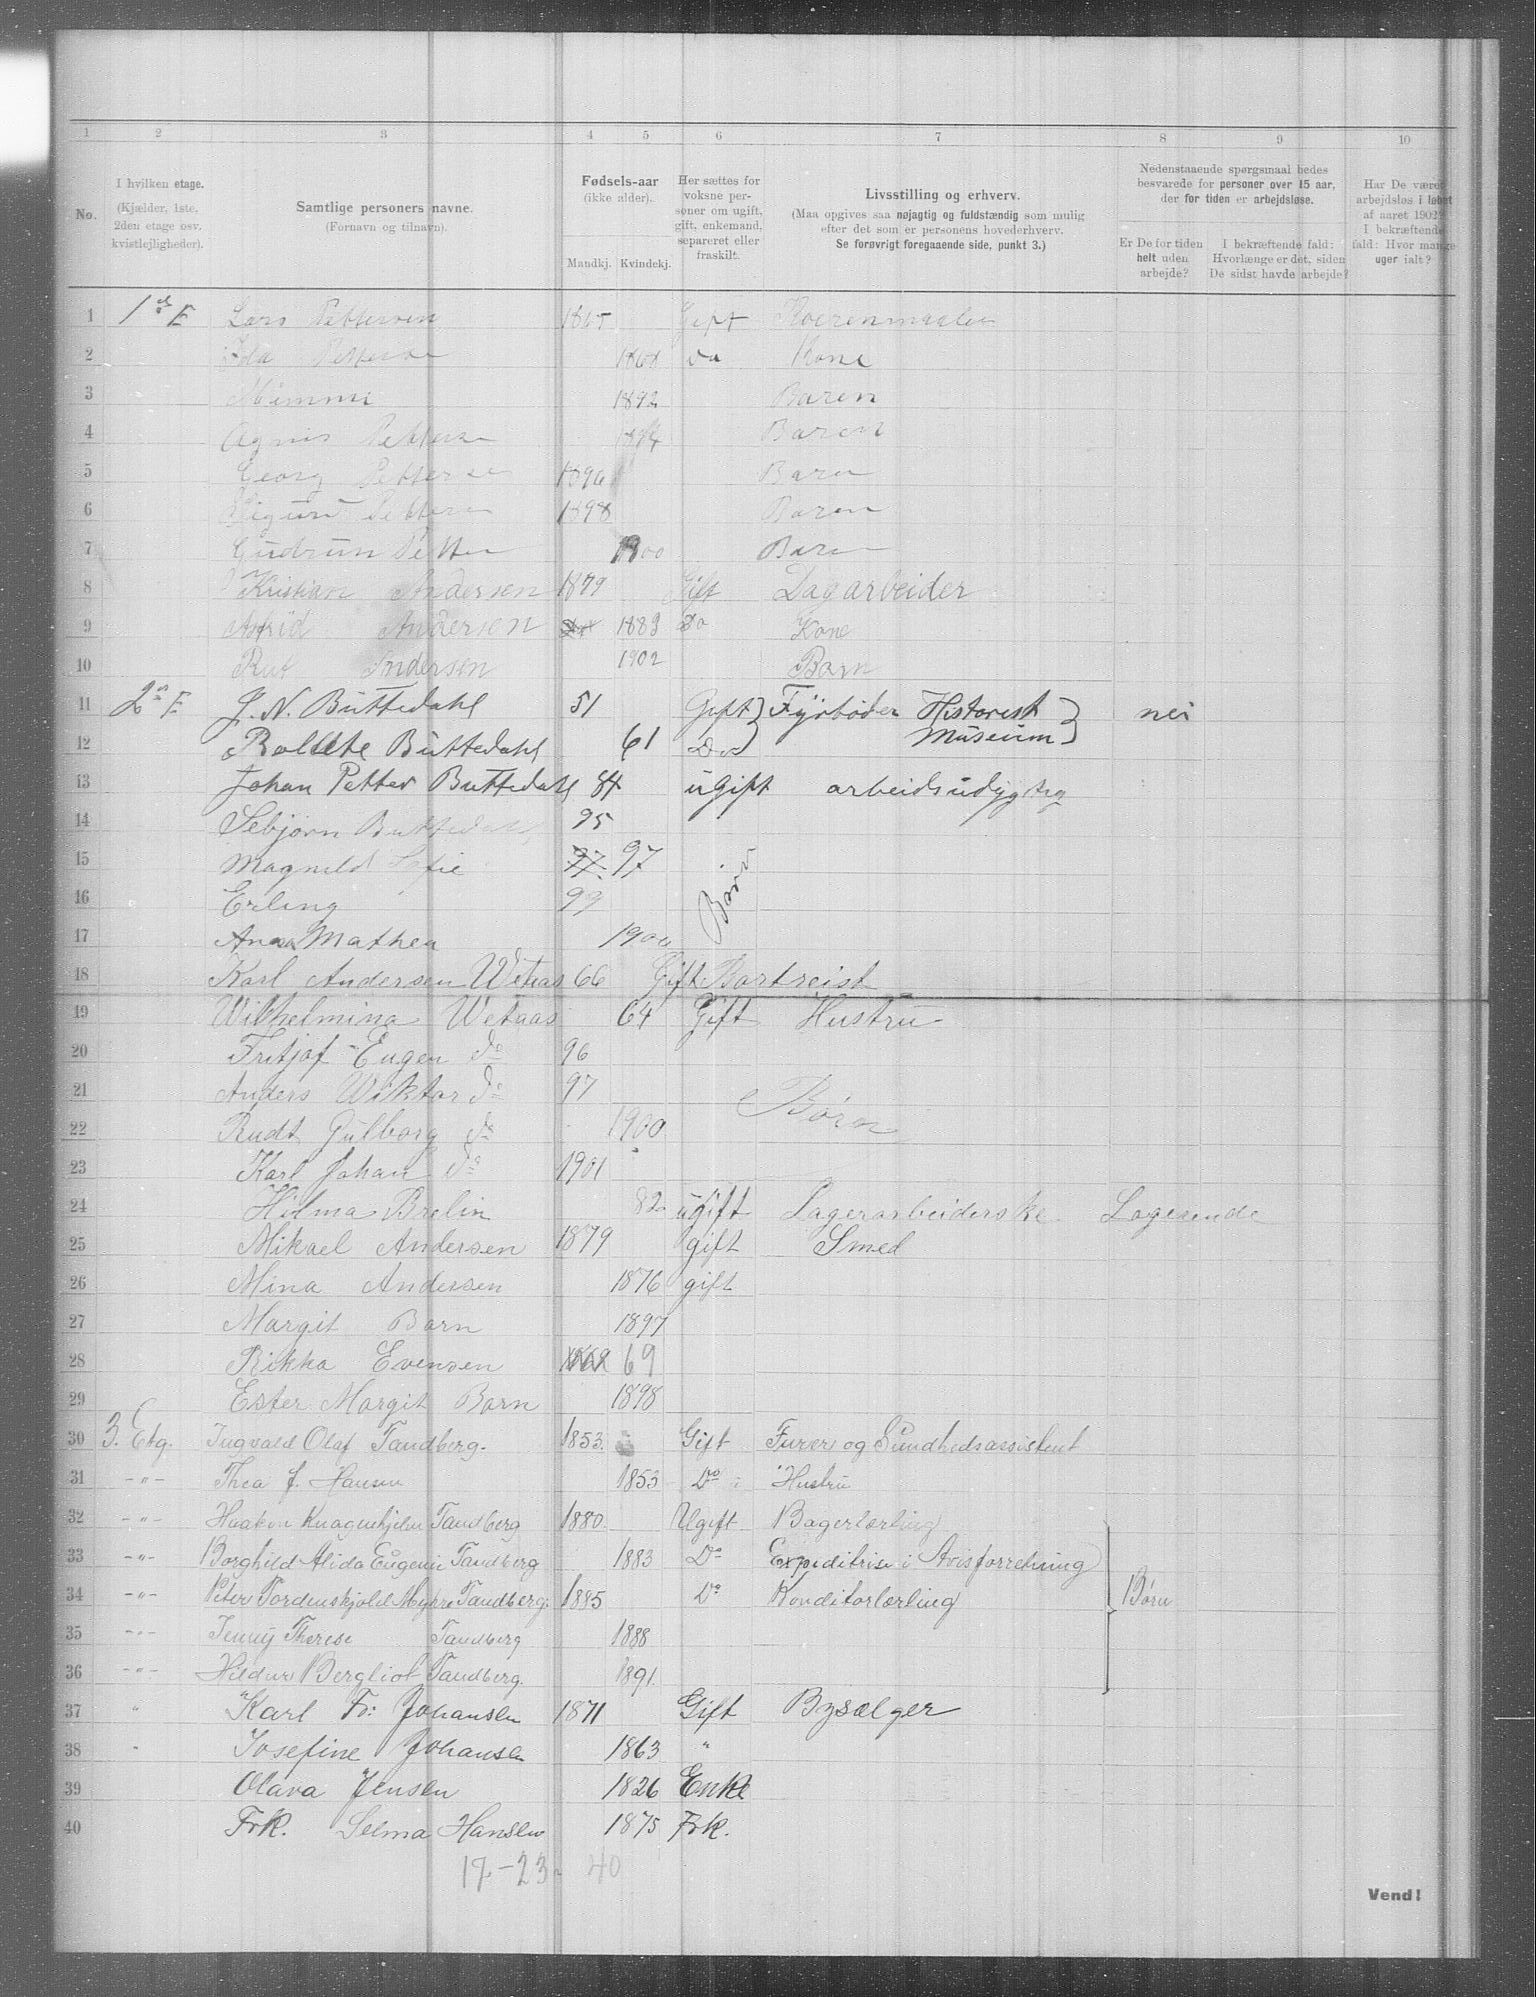 1 2 3 4 5 6 7 8 9 10
No.
I hvilken etage.
(Kjælder, 1ste,
2den etage osv.
kvistlejligheder).
Samtlige personers navne.
(Fornavn og tilnavn).
Fødsels-aar
(ikke alder).
Mandkj. Kvindekj.
Her sættes for
voksne per-
soner om ugift,
gift, enkemand,
separeret eller
fraskilt.
Livsstilling og erhverv.
(Maa opgives saa nøjagtig og fuldstændig som mulig
efter det som er personens hovederhverv.
Se forøvrigt foregaaende side, punkt 3.)
Nedenstaaende spørgsmaal bedes
besvarede for personer over 15 aar,
der for tiden er arbejdsløse.
Er De for tiden
helt uden
arbejde?
I bekræftende fald:
Hvorlænge er det, siden
De sidst havde arbejde?
Har De været
arbejdsløs i løbet
af aaret 1902?
I bekræftende
fald: Hvor mange
uger ialt?
1 1ste E Lars Pettersen 1865 Gift
2 Ida Petterse 1868 Do Kone
3 Mimmi 1892 Baren
4 Agnis Petterse 1894 Baren
5 Georg Pettersen 1896 Baren
6 Sigurd Petteren 1898 Baren
7 Gudrun Petten 1900 Baren
8 Kristian Andersen 1879 Gift Dagarbeider
9 Astrid Andersen 1883 Do Kone
10 Rut Andersen 1902 Barn
11 2en E J. N. Buttedahl 51 Gift Fyrbøder Historisk nei
12 Bollette Buttedahl 61 Do Museium
13 Johan Petter Buttedahl 84 ugift arbeidsudygtig
14 Sebjørn Buttedahl 95
15 Magnild Sofie 97 97 Børn
16 Erling 99
17 Anna Mathea 1900
18 Karl Andersen Wetaas 66 Gift Bortreist
19 Wilhelmina Wetaas 64 Gift Hustru
20 Fritjof Eugen do 96
21 Anders Wiktor do 97 Børn
22 Rudt Gulborg do 1900
23 Karl Johan do 1901
24 Hilma Brelin 82 ugift Lagerarbeiderske Logerende
25 Mikael Andersen 1879 gift Smed
26 Mina Andersen 1876 gift
27 Margit Barn 1897
28 Rikka Evensen 69
29 Ester Margit Barn 1898
30 3. Etg. Ingvald Olaf Tandberg. 1853. Gift Furer og Sundhedsassistent
31 -"- Thea J. Hansen 1853 Do Hustru
32 -"- Haakon Knagenhjelm Tandberg 1880. Ugift Bagerlærling
33 -"- Borghild Alida Eugenie Tandberg 1883 Do Expeditrise i Avisforretning
34 -"- Peter Tordenskjold Myhre Tandberg. 1885 Do Konditorlærling Børn
35 -"- Jenny Therese Tandberg 1888
36 -"- Hildur Bergliot Tandberg. 1891.
37 " Karl Fr: Johansen 1871 Gift Bysælger
38 " Josefine Johansen 1863 "
39 Olava Jensen 1826 Enke
40 Frk. Selma Hansen 1875 Frk.
17-23- 40
Vend!